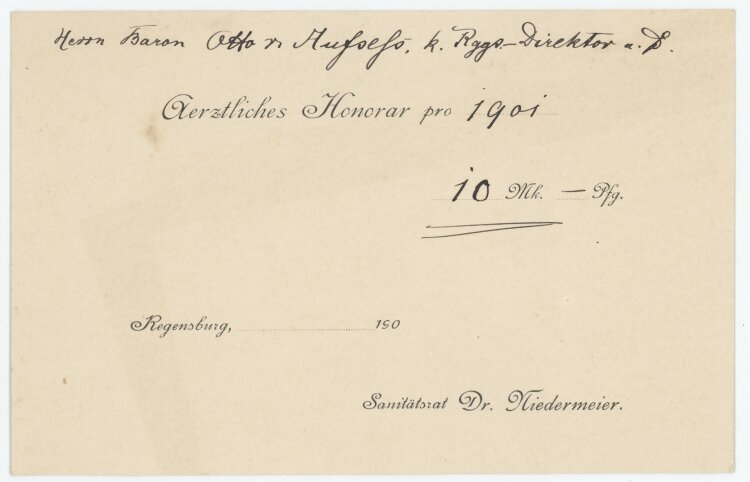 Herrn Baron Otto v. Aufseß, k. Rggs.-Direktor a. D.
Aerztliches Honorar pro 1901
10 Mk. — Pfg.
Regensburg, 190
Sanitätsrat Dr. Niedermeier.